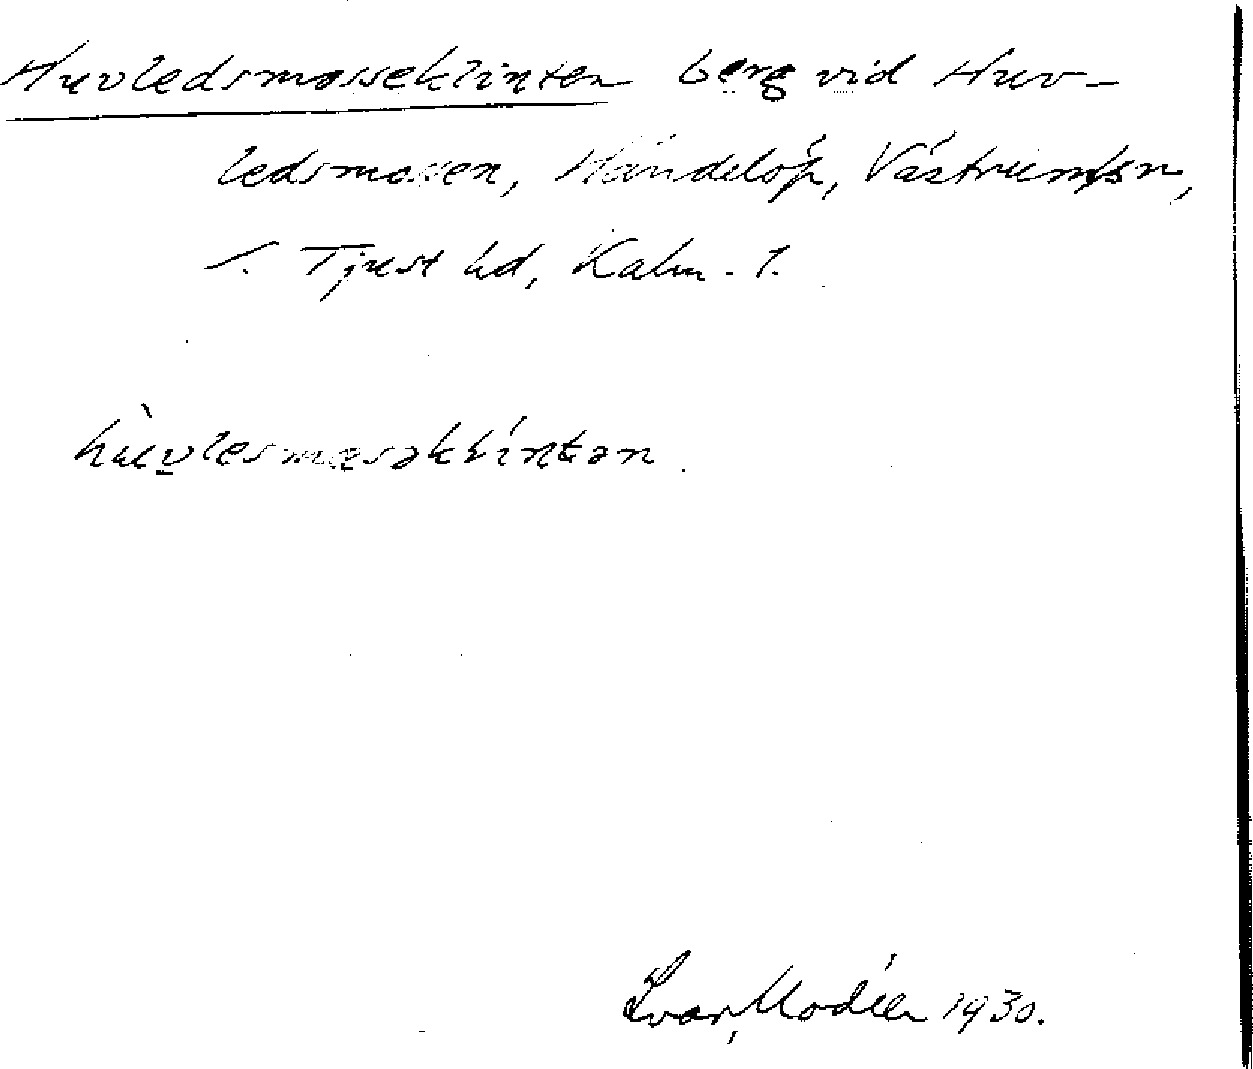 Huvledsmosseklinten berg vid Huv-
ledsmossen, Händelöp, Västrum sn,
S. Tjust hd, Kalm. l.
hùvlesmɷsəklíntən.
Ivar Modéer 1930.